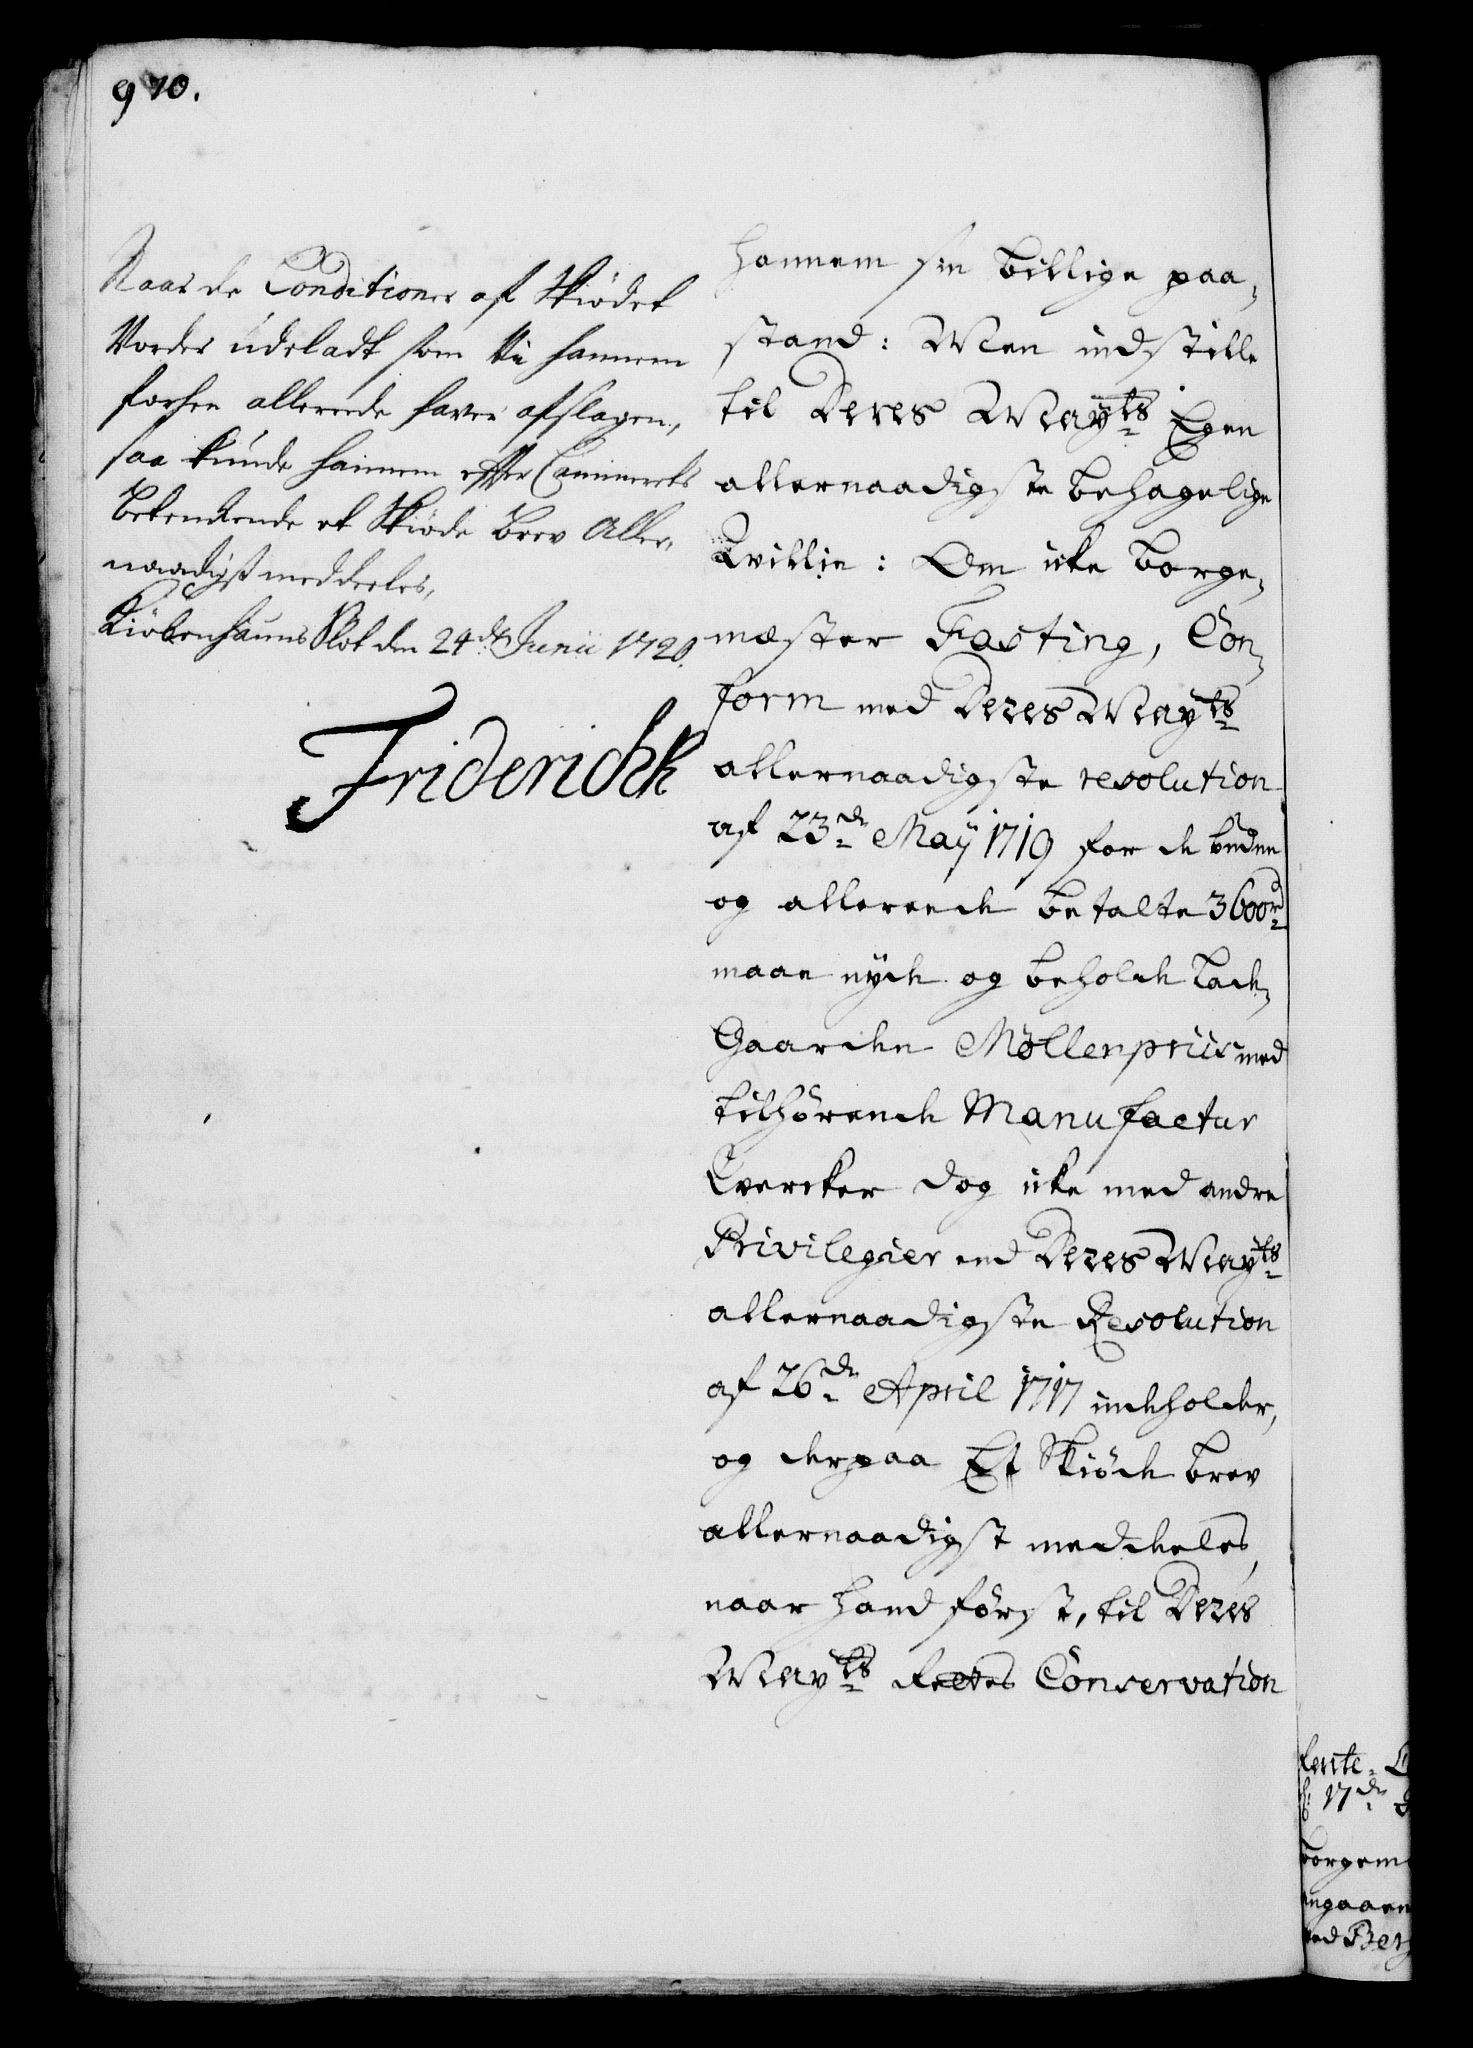 970.
Naar de Conditioner af Skiødet
Vorder udeladt som Vi hannem
forhen allereede haver afslagen,
saa kunde hannem efter Cammerets
Betenkende et Skiøde Brev Aller,,
naadigst meddeeles,
Kiøbenhauns Slot den 24de Junii 1720.
Friderich R
hannem sin billige paa,,
stand: Men indstille
til Deres Mayts Egen
allernaadigste behagelige
Villie: Om icke Borge,,
mæster Fasting, Con,,
form med Deres Mayts
allernaadigste resolution
af 23de Maÿ 1719 for de budne
og allereede betalte 3600rd
maae nyde og beholde Lade,,
Gaarden Møllenpriis med
tilhørende Manufactur
Vercker dog icke med andre
Privilegier end Deres Mayts
allernaadigste Resolution
af 26de April 1717 indeholder,
og derpaa Et Skiøde brev
allernaadigst meddeeles,
naar hand først, til Deres
Mayts Rettes Conservation
Rente-
17de
Borgem
angaaen
ved Berg